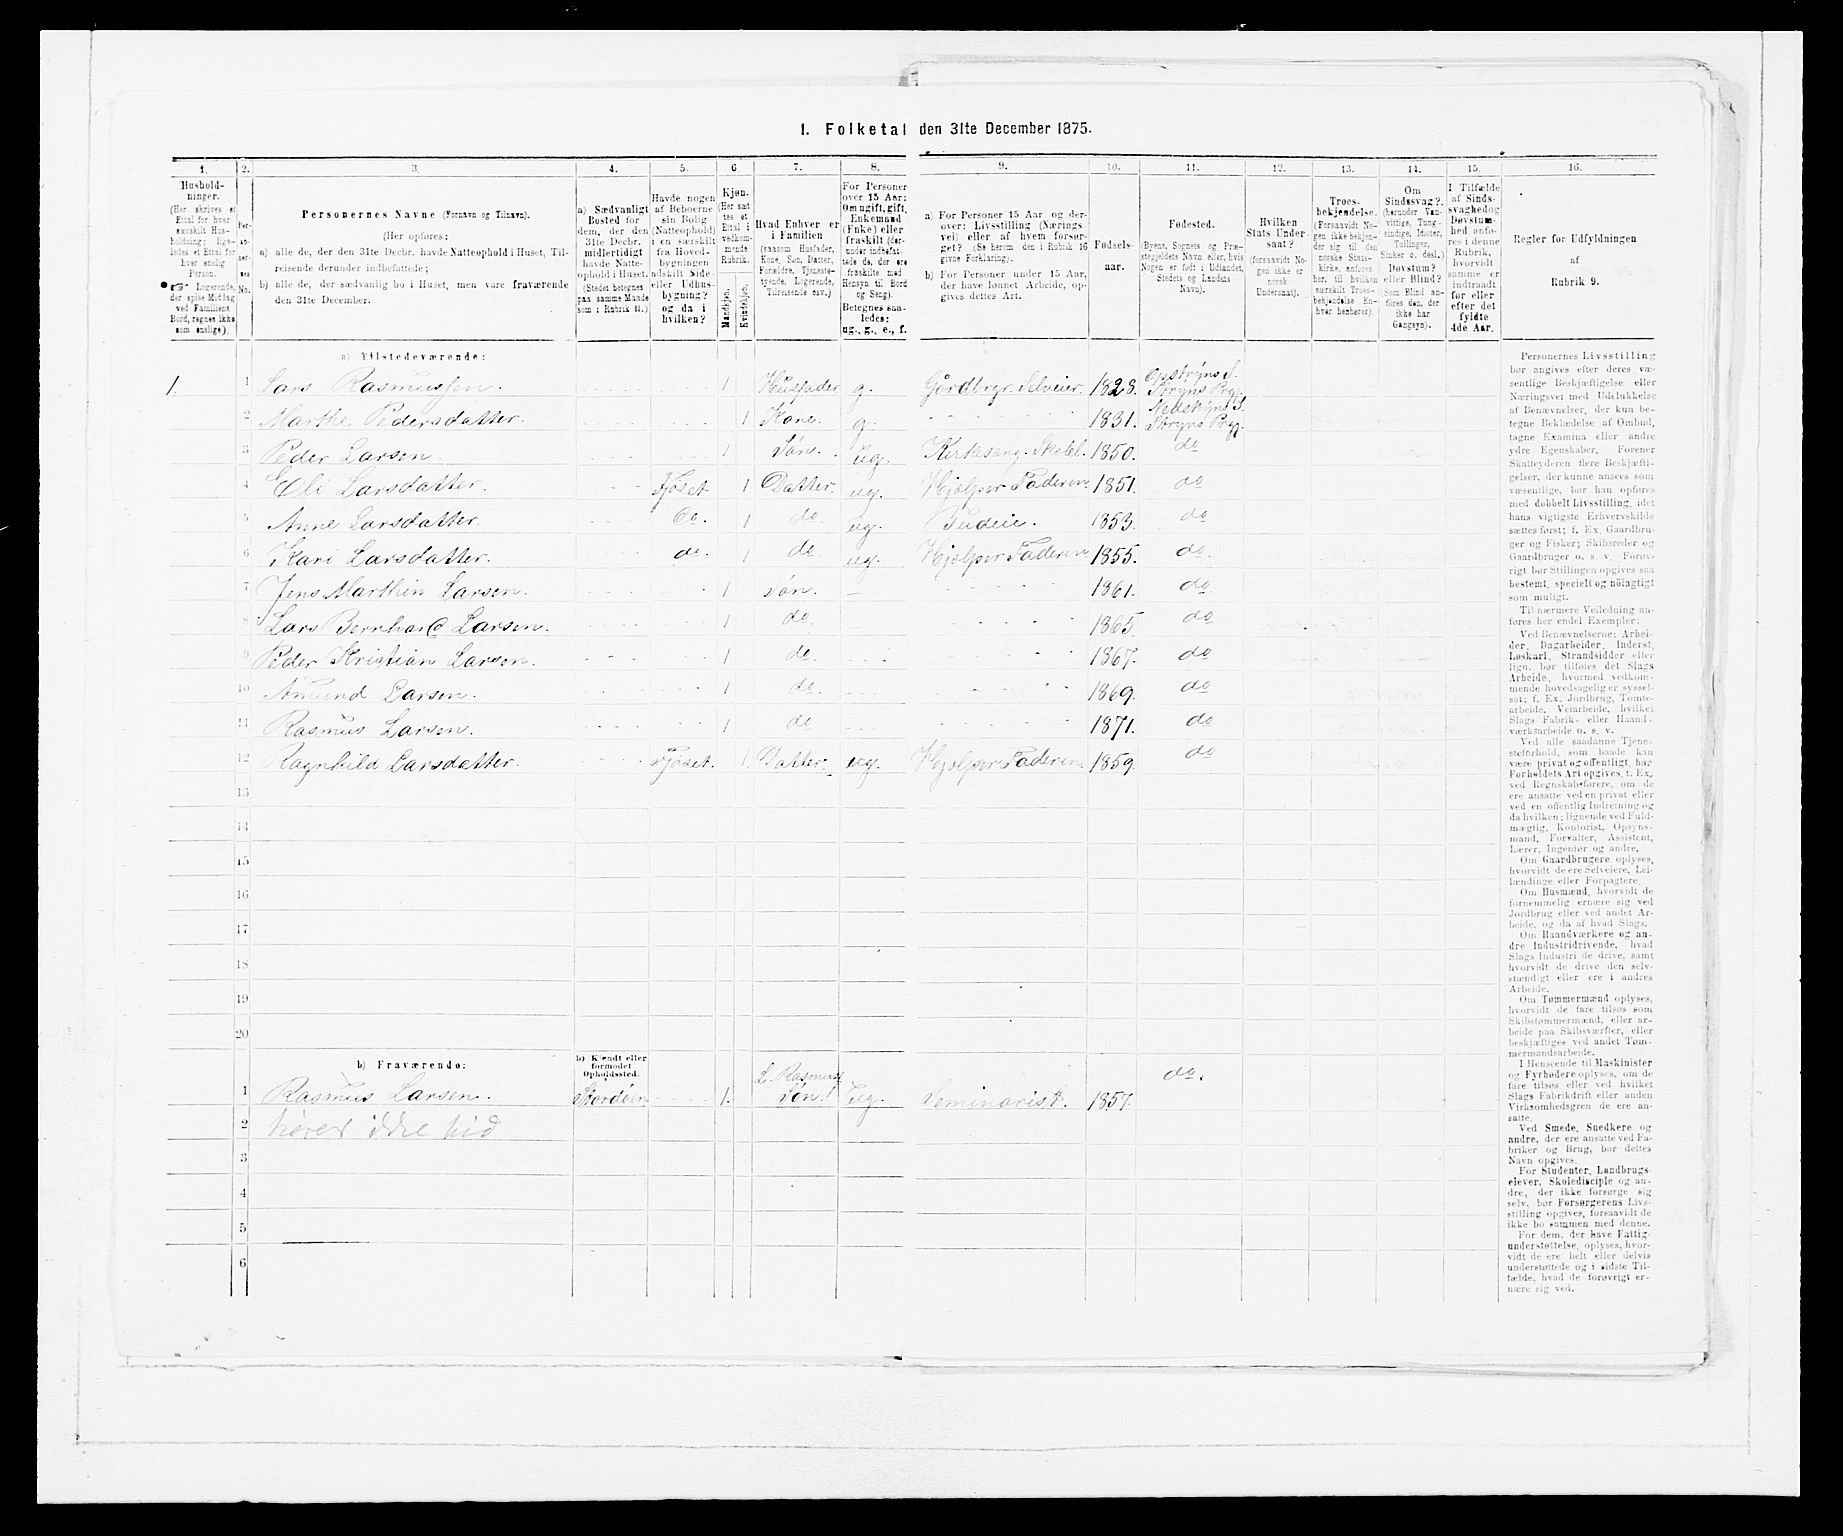 1. Folketal den 31te December 1875.
1. 2. 3. 4. 5. 6. 7. 8. 9. 10. 11. 12. 13. 14. 15. 16.
Hushold-
ninger.
(Her skrives et
Ettal for hver
særskilt Hus-
holdning; lige-
ledes et Ettal for
hver enslig
Person.
Logerende,
der spise Middag
ved Familiens
Bord, regnes ikke
som enslige).
Per-
so-
ner-
nes
No.
Personernes Navne (Fornavn og Tilnavn).
(Her opføres:
a) alle de, der den 31te Decbr. havde Natteophold i Huset, Til-
reisende derunder indbefattede;
b) alle de, der sædvanlig bo i Huset, men vare fraværende
den 31te December.
a) Sædvanligt
Bosted for
dem, der den
31te Decbr.
midlertidigt
havde Natte-
ophold i Huset.
(Stedet betegnes
paa samme Maade
som i Rubrik 11.)
Havde nogen
af Beboerne
sin Bolig
(Natteophold)
i en særskilt
fra Hoved-
bygningen
adskilt Side-
eller Udhus-
bygning?
og da i
hvilken?
Kjøn.
(Her sæt-
tes et
Ettal i
vedkom-
mende
Rubrik.
Mandkjøn.
Kvindekjøn.
Hvad Enhver er
i Familien
(saasom Husfader,
Kone, Søn, Datter,
Forældre, Tjeneste-
tyende, Logerende,
Tilreisende osv.)
For Personer
over 15 Aar:
Om ugift, gift,
Enkemand
(Enke) eller
fraskilt (der-
under indbefat-
tede de, der ere
fraskilte med
Hensyn til Bord
og Seng).
Betegnes saa-
ledes:
ug., g., e., f.
a) For Personer 15 Aar og der-
over: Livsstilling (Nærings-
vei) eller af hvem forsør-
get? (Se herom den i Rubrik 16
givne Forklaring).
b) For Personer under 15 Aar,
der have lønnet Arbeide, op-
gives dettes Art.
Fødsels-
aar.
Fødested.
(Byens, Sognets og Præ-
stegjeldets Navn eller, hvis
Nogen er født i Udlandet,
Stedets og Landets
Navn).
Hvilken
Stats Under-
saat?
(forsaavidt No-
gen ikke er
norsk
Undersaat).
Troes-
bekjendelse.
(Forsaavidt No-
gen ikke bekjen-
der sig til den
norske Stats-
kirke, anføres
her, til hvilken
særskilt Troes-
bekjendelse En-
hver henhører).
Om
Sindssvag?
(herunder Van-
vittige, Tung-
sindige, Idioter,
Tullinger,
Sinker o. desl.)
Døvstum?
eller Blind?
(Som Blind an-
føres den, der
ikke har
Gangsyn).
I Tilfælde
af Sinds-
svaghed og
Døvstum-
hed anfø-
res i denne
Rubrik,
hvorvidt
samme er
indtraadt
før eller
efter det
fyldte
4de Aar.
Regler for Udfyldningen
af
Rubrik 9.
a) Tilstedeværende:
1. 1 Lars Rasmussen. 1 Husfader g. Gårdbrgr. Selveier. 1828. Opstryns S. Stryns Prgj.
2 Marthe Pedersdatter. 1 Kone. g. 1831. Nedstryns S. Stryns Prgj.
3 Peder Larsen. 1 Søn. ug. Kirkesang. Skolel. 1850. do
4 Eli Larsdatter. Fjøset 1 Datter. ug. Hjelper Faderen 1851. do
5 Anne Larsdatter. do. 1 do. ug. Budeie. 1853. do
6 Kari Larsdatter. do. 1 do ug. Hjelper Faderen 1855. do.
7 Jens Marthin Larsen. 1 Søn. 1861. do.
8 Lars Bernhard Larsen. 1 do. 1865. do
9 Peder Kristian Larsen. 1 do. 1867. do
10 Amund Larsen. 1 do. 1869. do
11 Rasmus Larsen. 1 do 1871. do
12 Ragnhild Larsdatter. Fjøset. 1. Datter. ug. Hjelper Faderen. 1859. do
13
14
15
16
17
18
19
20
b) Fraværende:
b) Kjendt eller
formodet
Opholdssted.
1 Rasmus Larsen. Stordøen 1. L. Rasmuss. Søn. ug. Seminarist. 1857. do.
2 hører ikke hid
3
4
5
6
Personernes Livsstilling
bør angives efter deres væ-
sentlige Beskjæftigelse eller
Næringsvei med Udelukkelse
af Benævnelser, der kun be-
tegne Beklædelse af Ombud,
tagne Examina eller andre
ydre Egenskaber. Forener
Skatteyderen flere Beskjæfti-
gelser, der kunne ansees som
væsentlige, bør han opføres
med dobbelt Livsstilling, idet
hans vigtigste Erhvervskilde
sættes først; f. Ex. Gaardbru-
ger og Fisker; Skibsreder og
Gaardbruger o. s. v. Forøv-
rigt bør Stillingen opgives saa
bestemt, specielt og nöiagtigt
som muligt.
Til nærmere Veiledning an-
føres her endel Exempler:
Ved Benævnelserne: Arbei-
der, Dagarbeider, Inderst,
Løskarl, Strandsidder eller
lign. bør tilføies det Slags
Arbeide, hvormed vedkom-
mende hovedsagelig er syssel-
sat; f. Ex. Jordbrug, Tomte-
arbeide, Veiarbeide, hvilket
Slags Fabrik- eller Haand-
værksarbeide o. s. v.
Ved alle saadanne Tjene-
steforhold, som baade kan
være privat og offentligt, bør
Forholdets Art opgives, t. Ex.
ved Regnskabsførere, om de
ere ansatte ved en privat eller
ved en offentlig Indretning og
da hvilken; lignende ved Fuld-
mægtig, Kontorist, Opsyns-
mand, Forvalter, Assistent,
Lærer, Ingeniør og andre.
Om Gaardbrugere oplyses,
hvorvidt de ere Selveiere, Lei-
lændinge eller Forpagtere.
Om Husmænd, hvorvidt de
fornemmelig ernære sig ved
Jordbrug eller ved andet Ar-
beide, og da af hvad Slags.
Om Haandværkere og an-
dre Industridrivende, hvad
Slags Industri de drive, samt
hvorvidt de drive den selv-
stændigt eller ere i andres
Arbeide.
Om Tømmermænd oplyses,
hvorvidt de fare tilsøs som
Skibstømmermænd, eller ar-
beide paa Skibsværfter, eller
beskjæftiges ved andet Tøm-
mermandsarbeide.
I Henseende til Maskinister
og Fyrbødere oplyses, om de
fare tilsøs eller ved hvilket
Slags Fabrikdrift eller anden
Virksomhedsgren de ere an-
satte.
Ved Smede, Snedkere og
andre, der ere ansatte ved Fa-
briker og Brug, bør dettes
Navn opgives.
For Studenter, Landbrugs-
elever, Skoledisciple og an-
dre, der ikke forsørge sig
selv, bør Forsørgerens Livs-
stilling opgives, forsaavidt de
ikke bo sammen med denne.
For dem, der have Fattig-
understøttelse, oplyses, hvor-
vidt de ere helt eller delvis
understøttede og i sidste Til-
fælde, hvad de forøvrigt er-
nære sig ved.